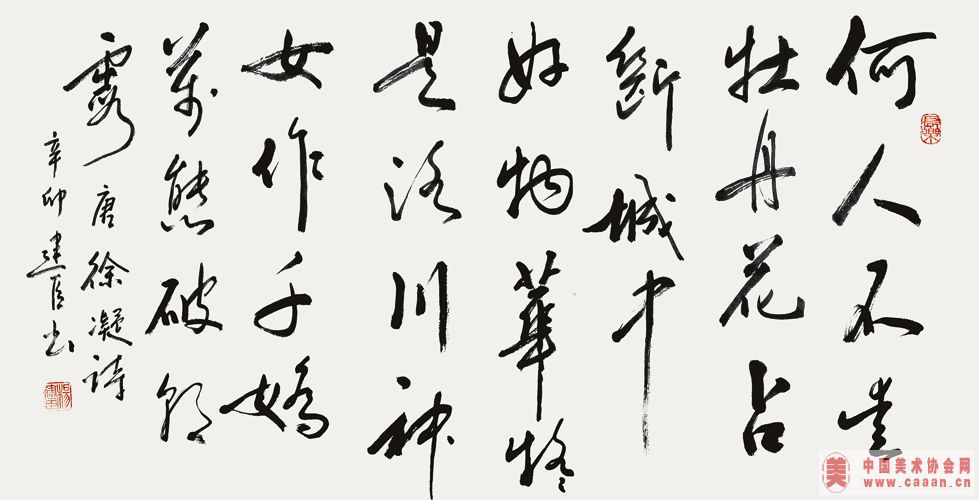 何人不愛
牡丹花占
斷城中
好物華疑
是洛川神
女作千嬌
萬態破朝
霞 唐徐凝詩
辛卯建書
美 中国美术协会网
www.caaan.cn